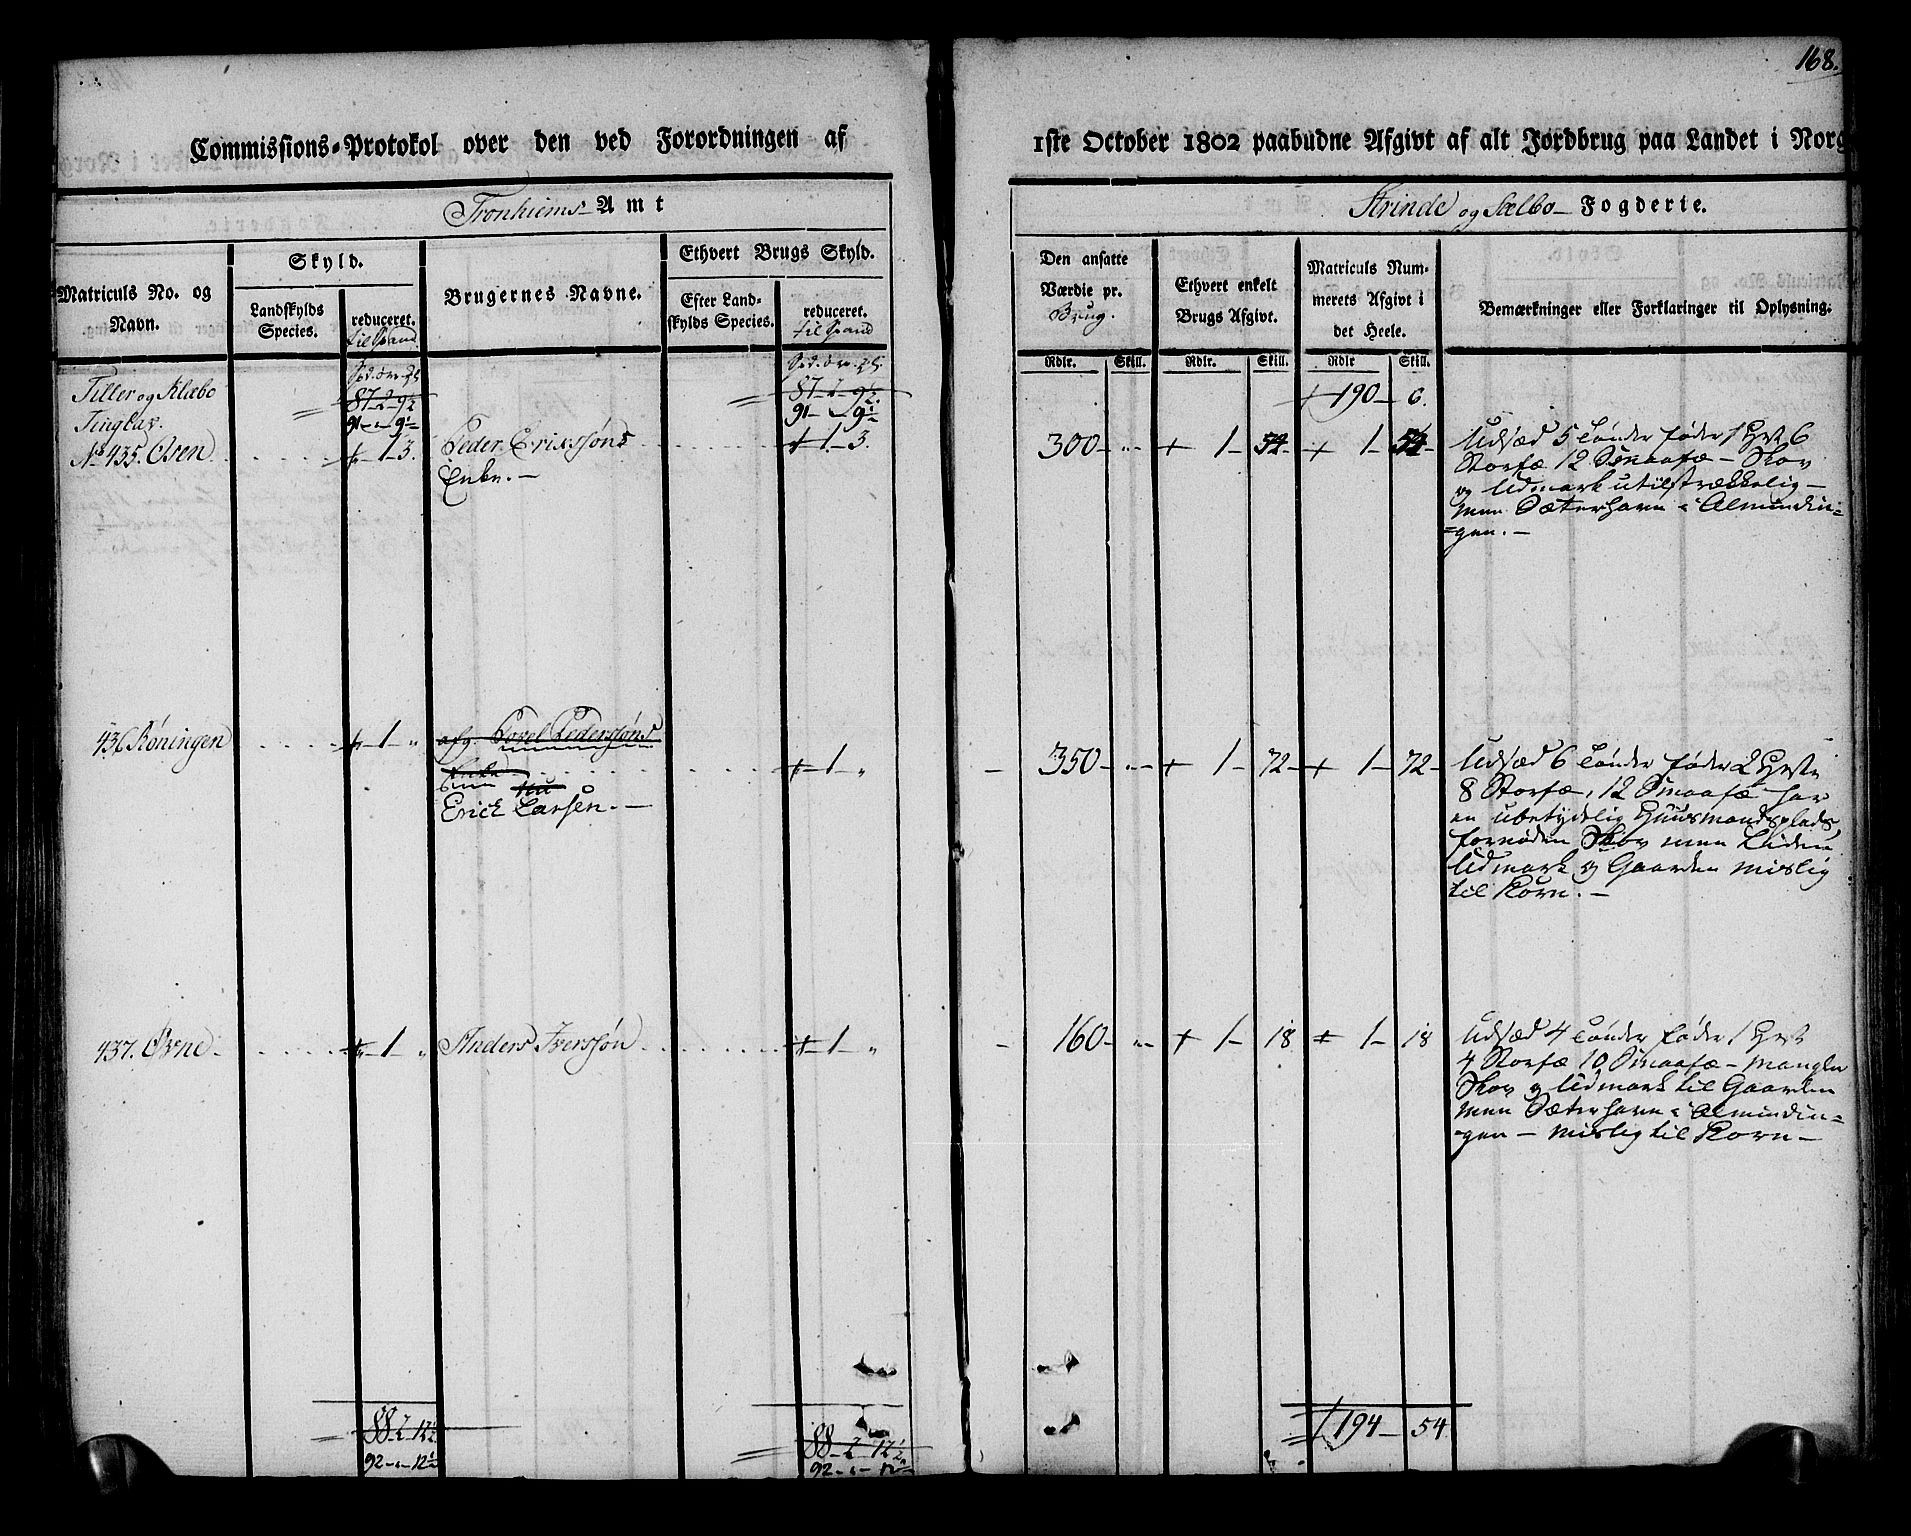 168.
Commissions-Protokol over den ved Forordningen af 1ste October 1802 paabudne Afgivt af alt Jordbrug paa Landet i Norg
Tronhiems Amt
Strinde og Sælbo Fogderie.
Matriculs No. og Navn.
Skyld.
Landskylds Species.
reduceret. til Spand
Brugernes Navne.
Ethvert Brugs Skyld.
Efter Landskylds Species.
reduceret. til Spand
Den ansatte Værdie pr. Brug.
Ethvert enkelt Brugs Afgivt.
Matriculs Nummerets Afgivt i det Heele.
Bemærkninger eller Forklaringer til Oplysning.
Rdlr. Skill. Rdlr. Skill. Rdlr Skill.
Tiller og Klæbo
Tinglav.
87-2-9½ 87-2-9½ 190-6.
91-"-9½ 91-"-9½
No 435. Osen 1 3. Peder Erixsøns 1-3. 300-"- 1-54- 1-54-
Enke.-
Udsæd 5 Tønder føder 1 Hest 6
Storfæ 12 Smaafæ - Skov
og Udmark utilstrækkelig -
men Sæterhavn i Almindin=
=gen.-
436 Røningen 1 " afg. Povel Pedersøns
Enke
nu
Erick Larsen.- 1-" 350-"- 1-72- 1-72-
Udsæd 6 Tønder føder 2 Heste
8 Storfæ, 12 Smaafæ har
en ubetydelig Huusmandsplads
fornøden Skov men Liden
Udmark og Gaarden mislig
til Korn.-
437. Øvne 1 " Anders Iverssøn 1-" 160-"- 1-18 1-18
Udsæd 4 Tønder føder 1 Hest
4 Storfæ 10 Smaafæ - mangler
Skov og Udmark til Gaarden
men Sæterhavn i Almindin=
=gen - mislig til Korn -
88-2-12½ 88-2-12½ 194-54.
92-"-12½ 92-"-12½